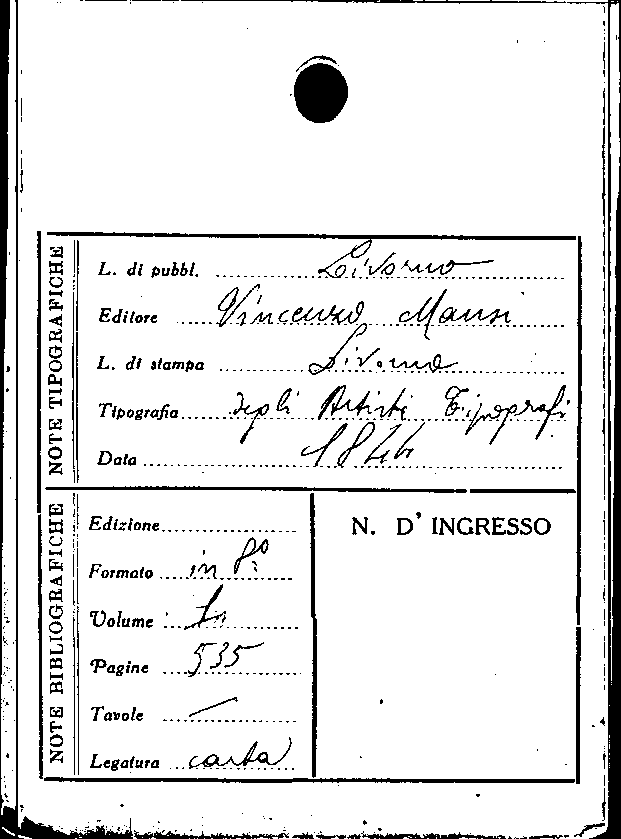 NOTE TIPOGRAFICHE
L. di pubbl. Livorno
Editore Vincenzo Mansi
L. di stampa Livorno
Tipografia degli Artisti Tipografi
Data
NOTE BIBLIOGRAFICHE
Edizione
Formato in 8º
Volume
Pagine 535
Tavole —
Legatura carta
N. D' INGRESSO